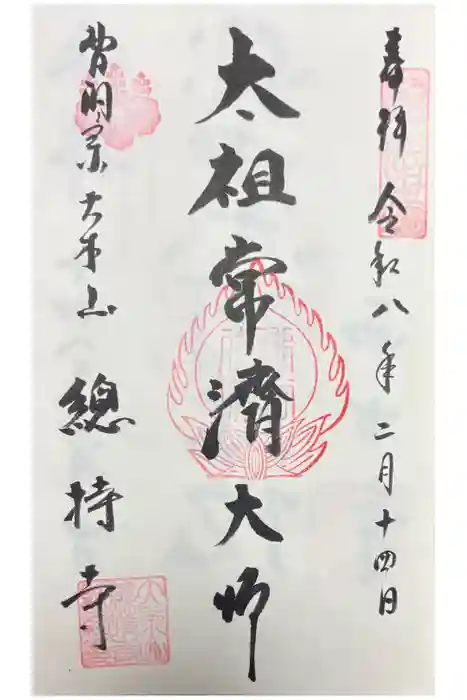 奉拝 令和八年二月十四日
太祖常濟大師
曹洞宗大本山 總持寺